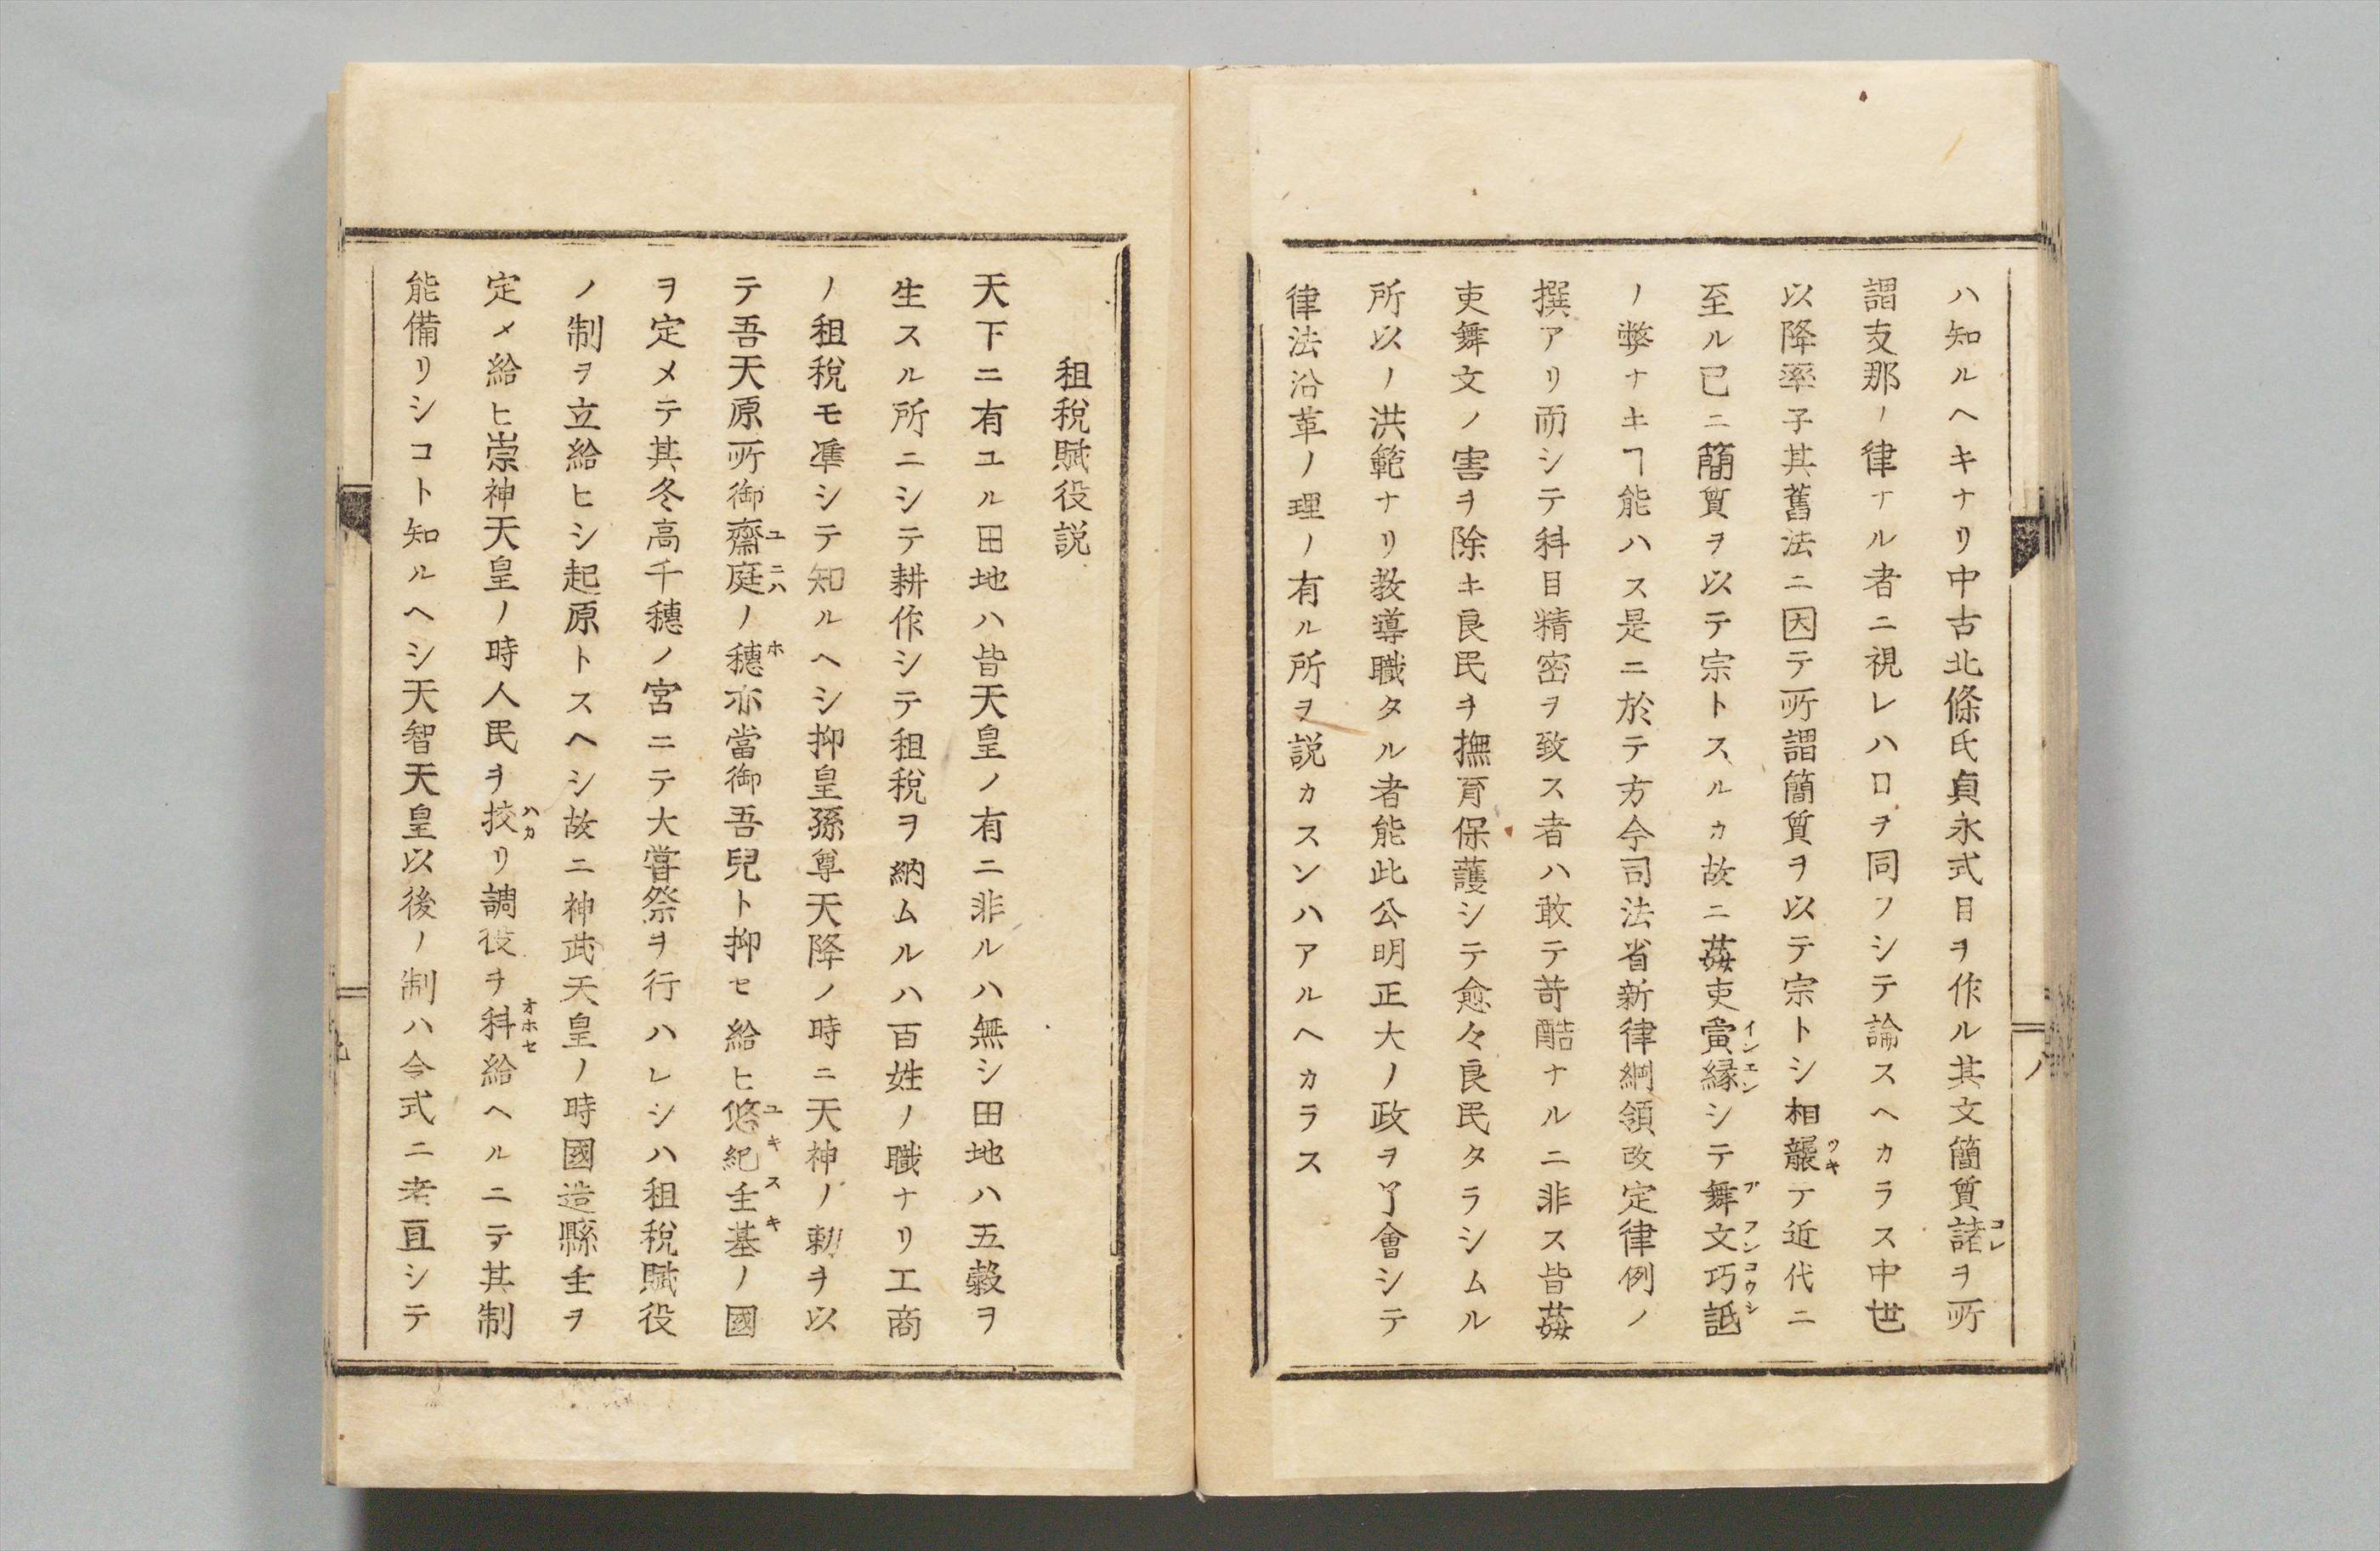 ハ知ルヘキナリ中古北條氏貞永式目ヲ作ル其文簡質諸ヲ所
謂支那ノ律ナル者ニ視レハ口ヲ同フシテ論スヘカラス中世
以降率子其舊法ニ因テ所謂簡質ヲ以テ宗トシ相襲テ近代ニ
至ル已ニ簡質ヲ以テ宗トスルカ故ニ姦吏夤縁シテ舞文巧詆
ノ弊ナキヿ能ハス是ニ於テ方今司法省新律綱領改定律例ノ
撰アリ而シテ科目精密ヲ致ス者ハ敢テ苛酷ナルニ非ス皆姦
吏舞文ノ害ヲ除キ良民ヲ撫育保護シテ愈々良民タラシムル
所以ノ洪範ナリ教導職タル者能此公明正大ノ政ヲ了會シテ
律法沿革ノ理ノ有ル所ヲ説カスンハアルヘカラス
八
租税賦役説
天下ニ有ユル田地ハ皆天皇ノ有ニ非ルハ無シ田地ハ五穀ヲ
生スル所ニシテ耕作シテ租税ヲ納ムルハ百姓ノ職ナリ工商
ノ租税モ準シテ知ルヘシ抑皇孫尊天降ノ時ニ天神ノ勅ヲ以
テ吾天原所御齋庭ノ穂亦當御吾兒ト抑セ給ヒ悠紀主基ノ國
ヲ定メテ其冬高千穂ノ宮ニテ大嘗祭ヲ行ハレシハ租税賦役
ノ制ヲ立給ヒシ起原トスヘシ故ニ神武天皇ノ時國造縣主ヲ
定メ給ヒ崇神天皇ノ時人民ヲ挍リ調役ヲ科給ヘルニテ其制
能備リシコト知ルヘシ天智天皇以後ノ制ハ令式ニ考亘シテ